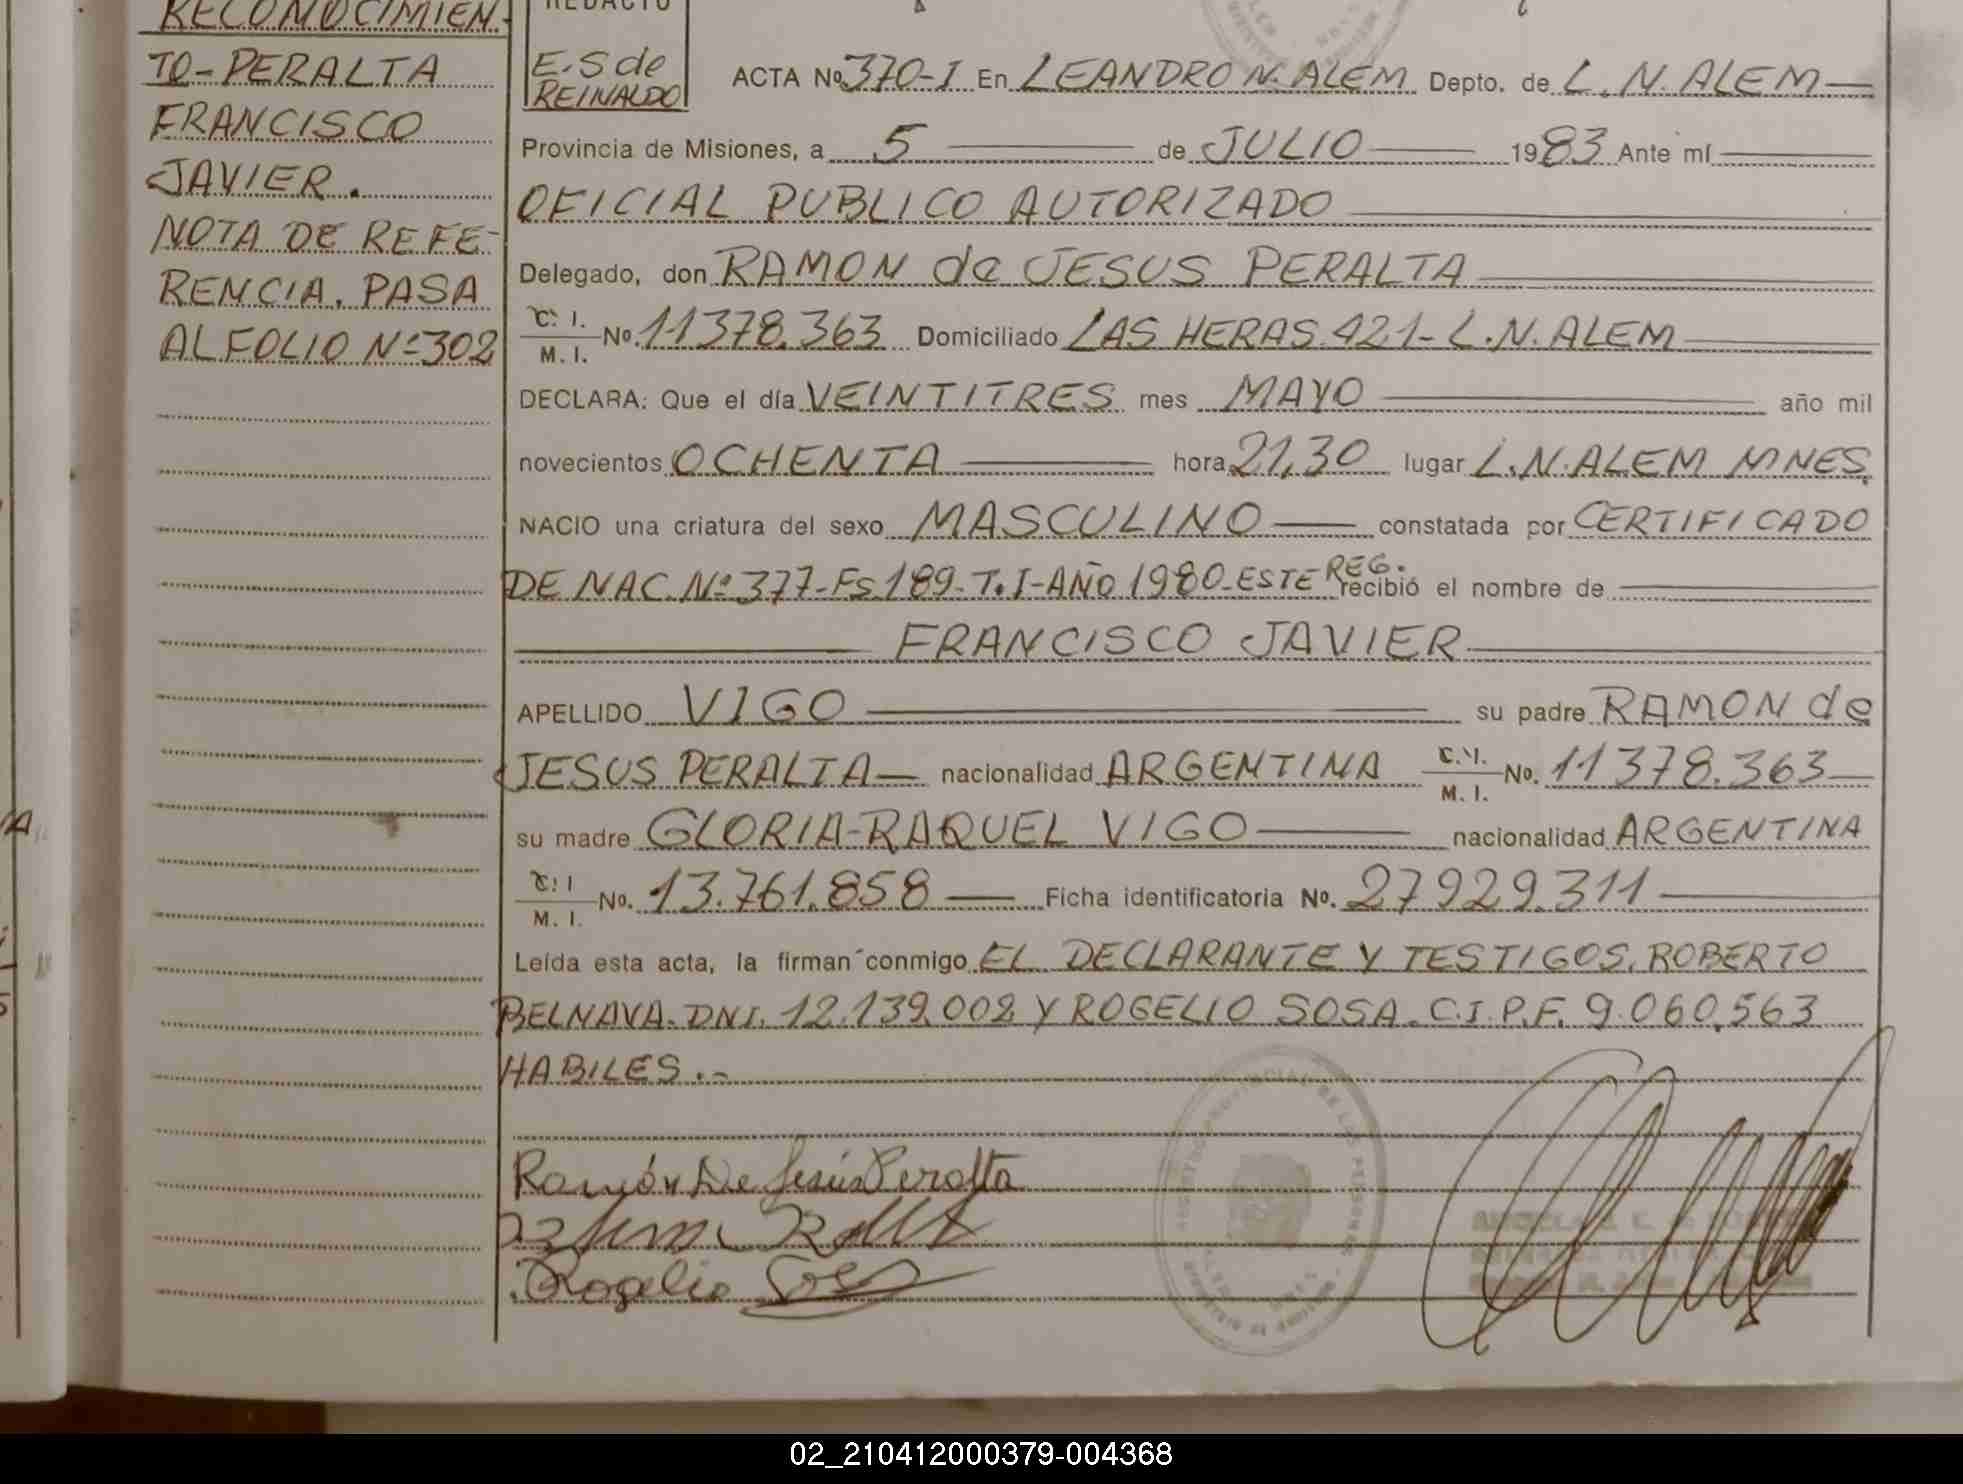 RECONOCIMIEN-
TO-PERALTA
FRANCISCO
JAVIER.
NOTA DE REFE-
RENCIA. PASA
AL FOLIO Nº302
REDACTO
E.S de
REINALDO
ACTA Nº 370-I En LEANDRO N. ALEM Depto. de L. N. ALEM
Provincia de Misiones, a 5 de JULIO 1983 Ante mí
OFICIAL PUBLICO AUTORIZADO
Delegado, don RAMON de JESUS PERALTA
C. I. / M. I. No. 11378.363 Domiciliado LAS HERAS 421- L.N. ALEM
DECLARA: Que el día VEINTITRES mes MAYO año mil
novecientos OCHENTA hora 21,30 lugar L.N.ALEM MNES.
NACIO una criatura del sexo MASCULINO constatada por CERTIFICADO
DE NAC. Nº 377-Fs 189-T.I-AÑO 1980-ESTE REG. recibió el nombre de
FRANCISCO JAVIER
APELLIDO VIGO su padre RAMON de
JESUS PERALTA nacionalidad ARGENTINA C.I. / M. I. No. 11378.363
su madre GLORIA-RAQUEL VIGO nacionalidad ARGENTINA
C. I / M. I. No. 13.761.858 Ficha identificatoria No. 27929.311
Leída esta acta, la firman conmigo EL DECLARANTE Y TESTIGOS. ROBERTO
BELNAVA. DNI. 12.139.002 Y ROGELIO SOSA. C.I.P.F. 9.060.563
HABILES.-
Ramón De Jesús Peralta
Rogelio Sosa
02_210412000379-004368